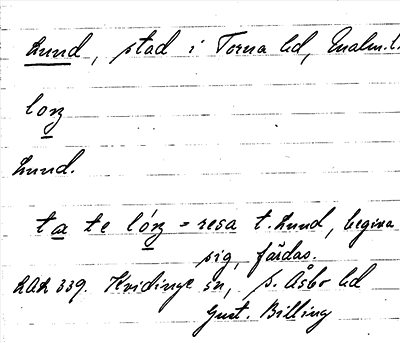 Lund, stad i Torna hd, Malm. l.
loɲ
Lund.
ta te lóɲ = resa t. Lund, begiva
sig, färdas.
RAÄ 339. Kvidinge sn, S. Åsbo hd
Gust. Billing